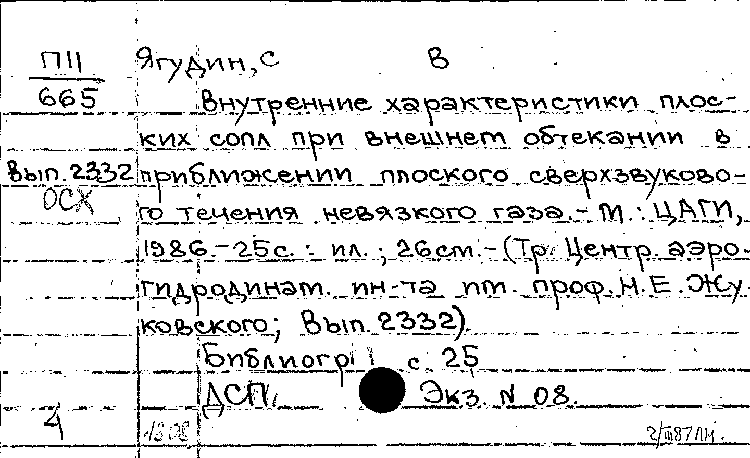 П11 Ягудин, С В
665 Внутренние характеристики плос-
ких сопл при внешнем обтекании в
Вып. 2332 приближении плоского сверхзвуково-
ОСХ го течения невязкого газа. - М.: ЦАГИ,
1986. - 25 с. : ил. ; 26 см. - (Тр. Центр. аэро-
гидродинам. ин-та им. проф. Н. Е. Жу-
ковского; Вып. 2332).
Библиогр с. 25
ДСП. Экз. N 08.
4